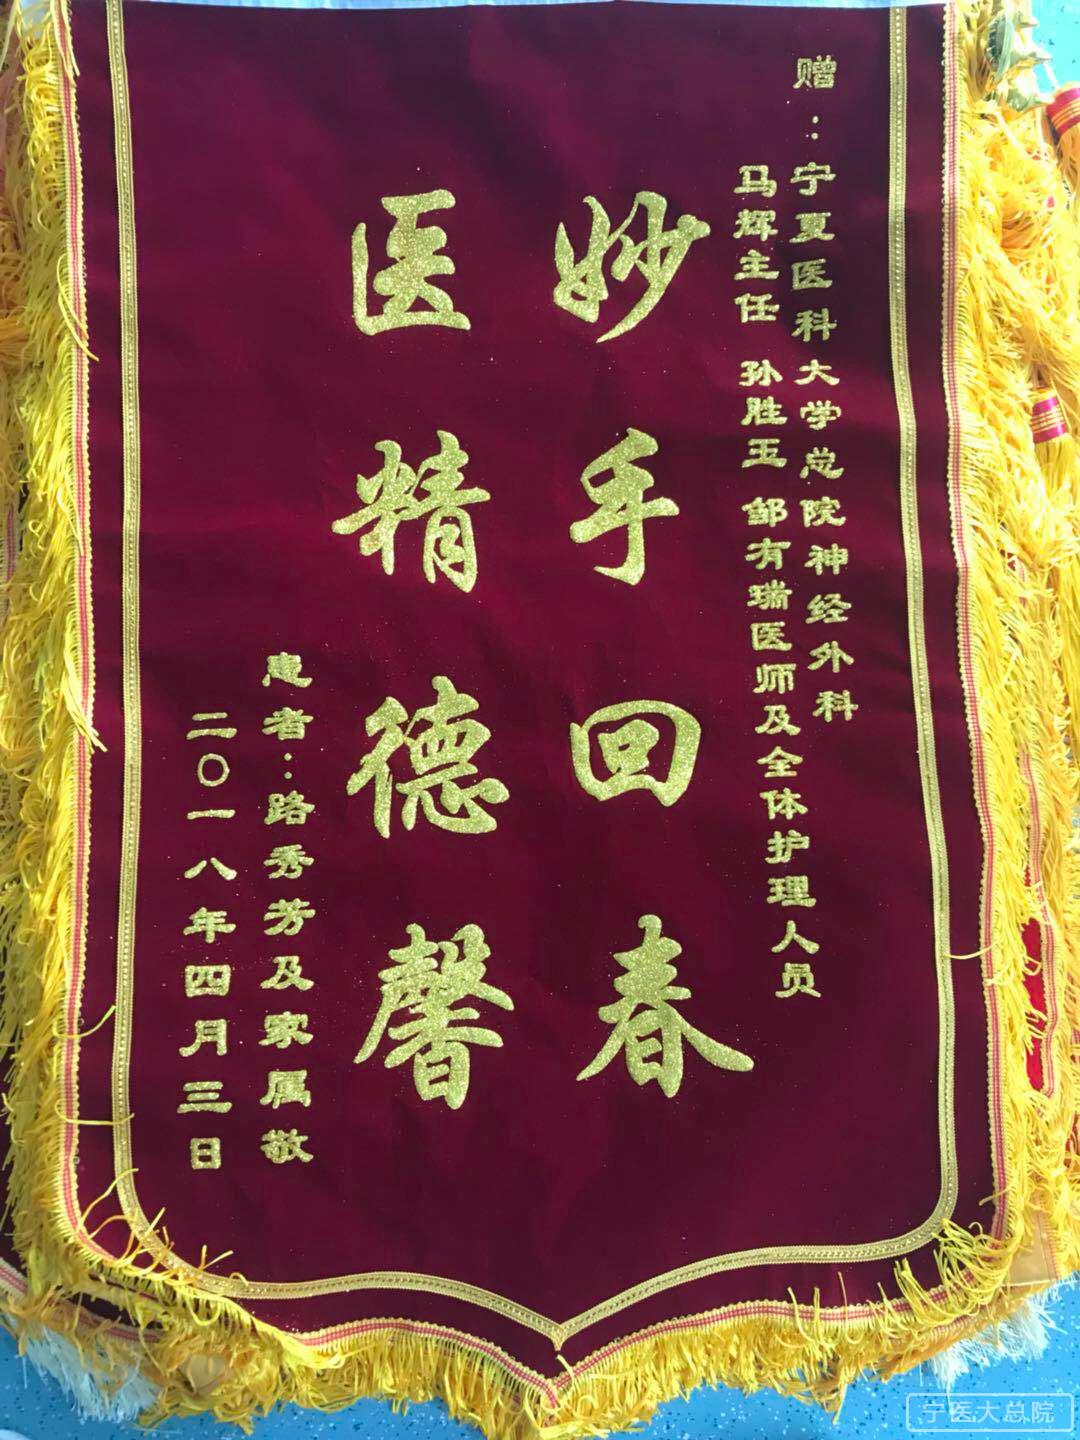 赠：宁夏医科大学总院神经外科
马辉主任 孙胜玉 邹有瑞医师及全体护理人员
妙手回春
医精德馨
患者：路秀芳及家属敬
二〇一八年四月三日
宁医大总院